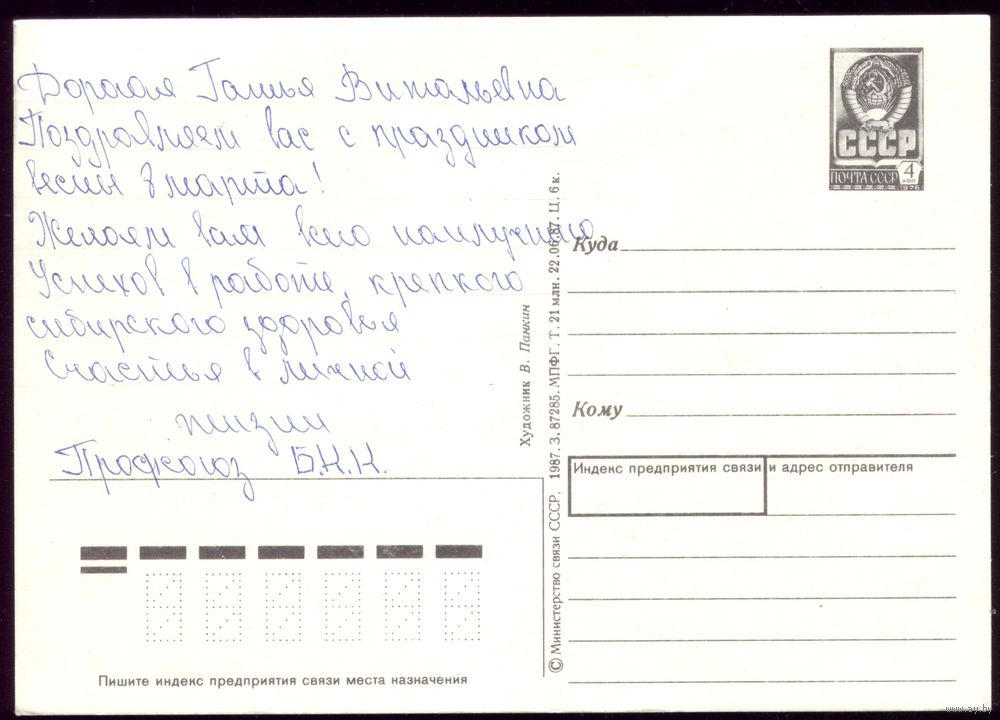 Дорогая Галья Витальевна
Поздравляем вас с праздником
весны 8 марта!
Желаем вам всего наилучшего
Успехов в работе, крепкого
сибирского здоровья
Счастья в личной
жизни
Профсоюз Б.К.К.
СССР
ПОЧТА СССР 4 КОП
1976
Куда
Кому
Индекс предприятия связи и адрес отправителя
Художник В. Панкин
© Министерство связи СССР. 1987. З. 87285. МПФГ. Т. 21 млн. 22.06.87. Ц. 6 к.
Пишите индекс предприятия связи места назначения